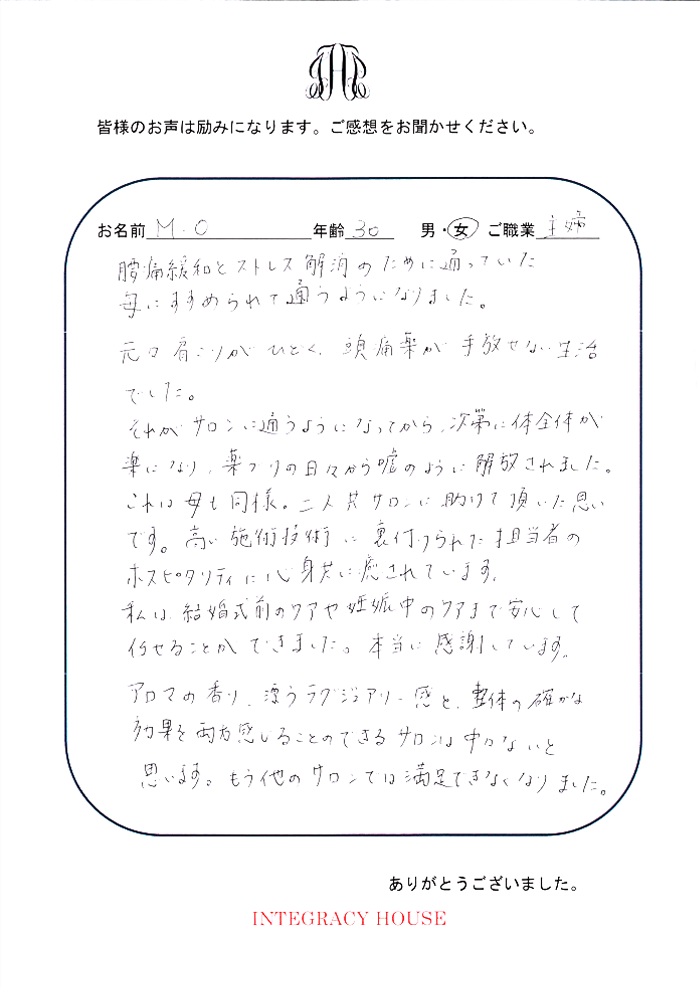 皆様のお声は励みになります。ご感想をお聞かせください。
お名前 M.O 年齢 30 男・女 ご職業 主婦
腰痛緩和とストレス解消のために通っていた
母にすすめられて通うようになりました。
元々肩こりがひどく、頭痛薬が手放せない生活
でした。
それがサロンに通うようになってから、次第に体全体が
楽になり、薬づけの日々から嘘のように解放されました。
これは母も同様。二人共サロンに助けて頂いた思い
です。高い施術技術に裏付けられた担当者の
ホスピタリティに心身共に癒されています。
私は結婚式前のケアや妊娠中のケアまで安心して
任せることができました。本当に感謝しています。
アロマの香り、漂うラグジュアリー感と、整体の確かな
効果を両方感じることのできるサロンは中々ないと
思います。もう他のサロンでは満足できなくなりました。
ありがとうございました。
INTEGRACY HOUSE